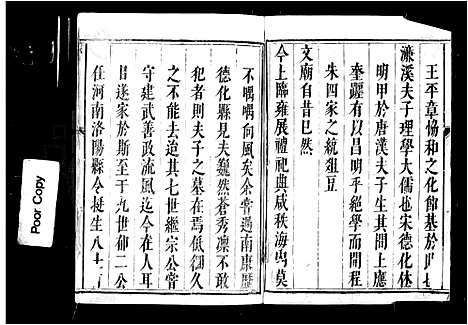 王平章協和之化節基於
濂溪夫子理學大儒也宋德化休
明甲於唐漢夫子生其間上應
奎躔有以昌明乎絕學而開程
朱四家之統俎豆
文廟自昔已然
今上臨雍展禮祀典咸秩海內莫
不喁喁向風矣余嘗過南康歷
德化縣見夫巍然蒼秀凜不敢
犯者則夫子之墓在焉低徊久
之不能去迨其七世繼宗公嘗
守建武善政流風迄今在人耳
目遂家於斯至于九世郁二公
任河南洛陽縣令挺生八十
Poor Copy